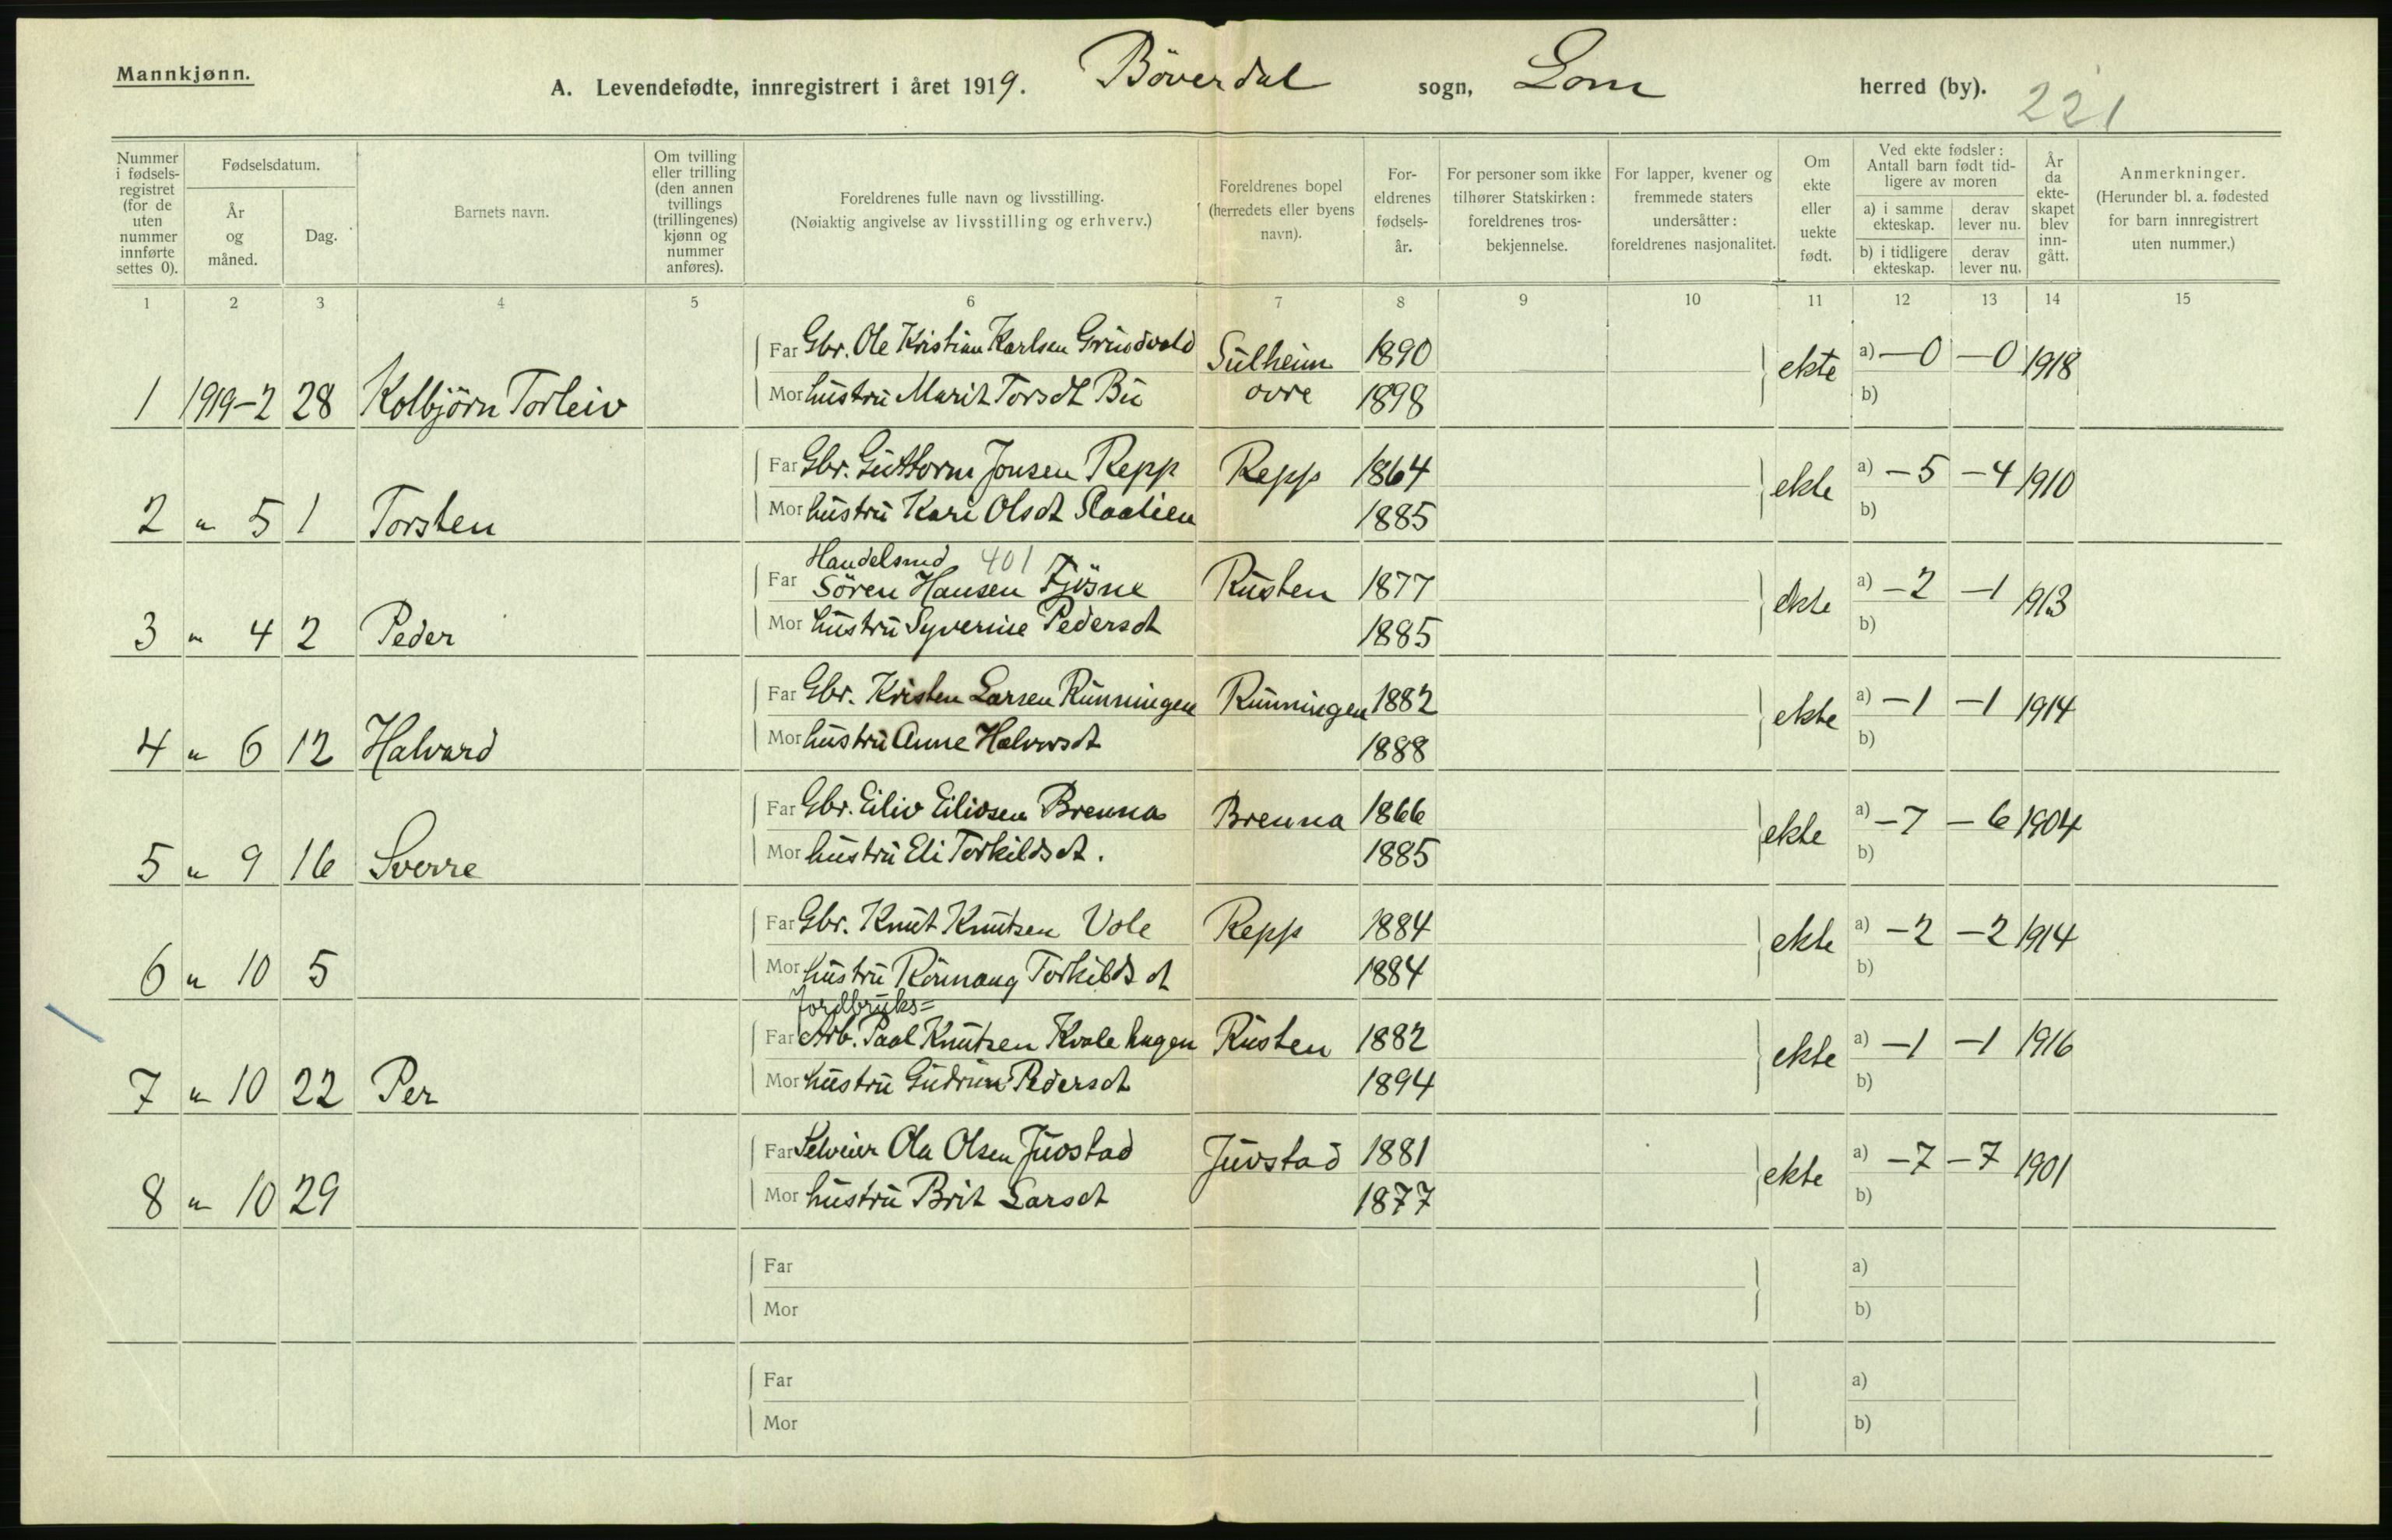 Mannkjønn.
A. Levendefødte, innregistrert i året 1919. Böverdal sogn, Lom herred (by). 221
Nummer i fødsels-registret (for de uten nummer innførte settes 0).
Fødselsdatum.
År og måned.
Dag.
Barnets navn.
Om tvilling eller trilling (den annen tvillings (trillingenes) kjønn og nummer anføres).
Foreldrenes fulle navn og livsstilling.
(Nøiaktig angivelse av livsstilling og erhverv.)
Foreldrenes bopel (herredets eller byens navn).
For-eldrenes fødsels-år.
For personer som ikke tilhører Statskirken: foreldrenes tros-bekjennelse.
For lapper, kvener og fremmede staters undersåtter: foreldrenes nasjonalitet.
Om ekte eller uekte født.
Ved ekte fødsler: Antall barn født tid-ligere av moren
a) i samme ekteskap.
derav lever nu.
b) i tidligere ekteskap.
derav lever nu.
År da ekte-skapet blev inn-gått.
Anmerkninger.
(Herunder bl. a. fødested for barn innregistrert uten nummer.)
1 2 3 4 5 6 7 8 9 10 11 12 13 14 15
Far Gbr. Ole Kristian Karlsen Sulheim 1890 ekte a) —0 —0 1918
1 1919-2 28 Kolbjörn Torleiv Mor hustru Marit Torsdt Bu øvre 1898 b)
Far Gbr. Guttorm Jonsen Repp Repp 1864 ekte a) —5 —4 1910
2 " 5 1 Torsten Mor hustru Kari Olsdt 1885 b)
Handelsmd 401
Far Sören Hansen Fjösne Rusten 1877 ekte a) —2 —1 1913
3 " 4 2 Peder Mor hustru Syverine Pedersdt 1885 b)
Far Gbr. Kristen Larsen Runningen Runningen 1882 ekte a) —1 —1 1914
4 " 6 12 Halvard Mor hustru Anne Halvorsdt 1888 b)
Far Gbr. Eiliv Eilivsen Brenna Brenna 1866 ekte a) —7 —6 1904
5 " 9 16 Sverre Mor hustru Eli Torkildsdt. 1885 b)
Far Gbr. Knut Knutsen Vole Repp 1884 ekte a) —2 —2 1914
6 " 10 5 Mor hustru Rönnaug Torkildsdt 1884 b)
Jordbruks=
Far Arb. Paal Knutsen Kvalehagen Rusten 1882 ekte a) —1 —1 1916
7 " 10 22 Per Mor hustru Gudrun Pedersdt 1894 b)
Far Selveier Ola Olsen Juvstad Juvstad 1881 ekte a) —7 —7 1901
8 " 10 29 Mor hustru Brit Larsdt 1877 b)
Far a)
Mor b)
Far a)
Mor b)